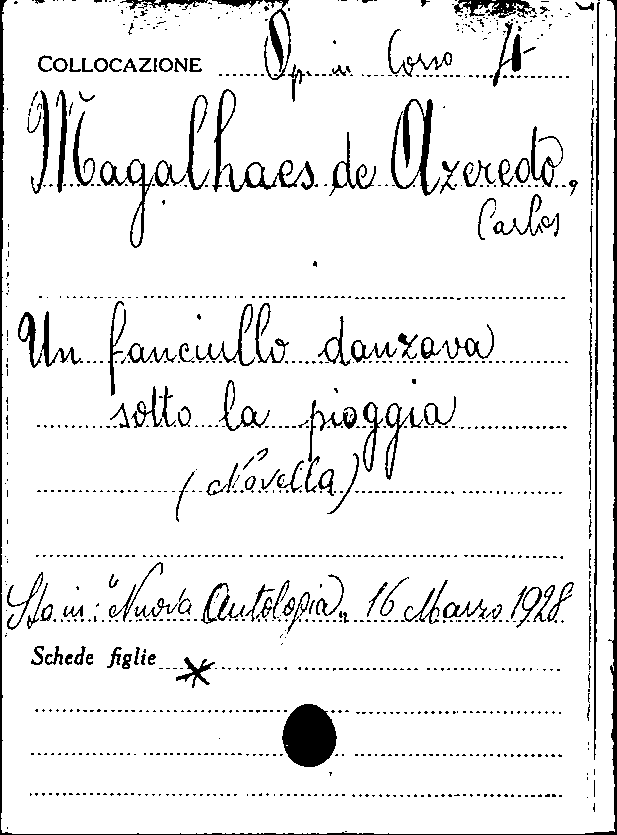 COLLOCAZIONE Op. in Corso
Magalhaes de Azeredo,
Carlos
Un fanciullo danzava
sotto la pioggia
(Novella)
Sta in: "Nuova Antologia" 16 Marzo 1928
Schede figlie